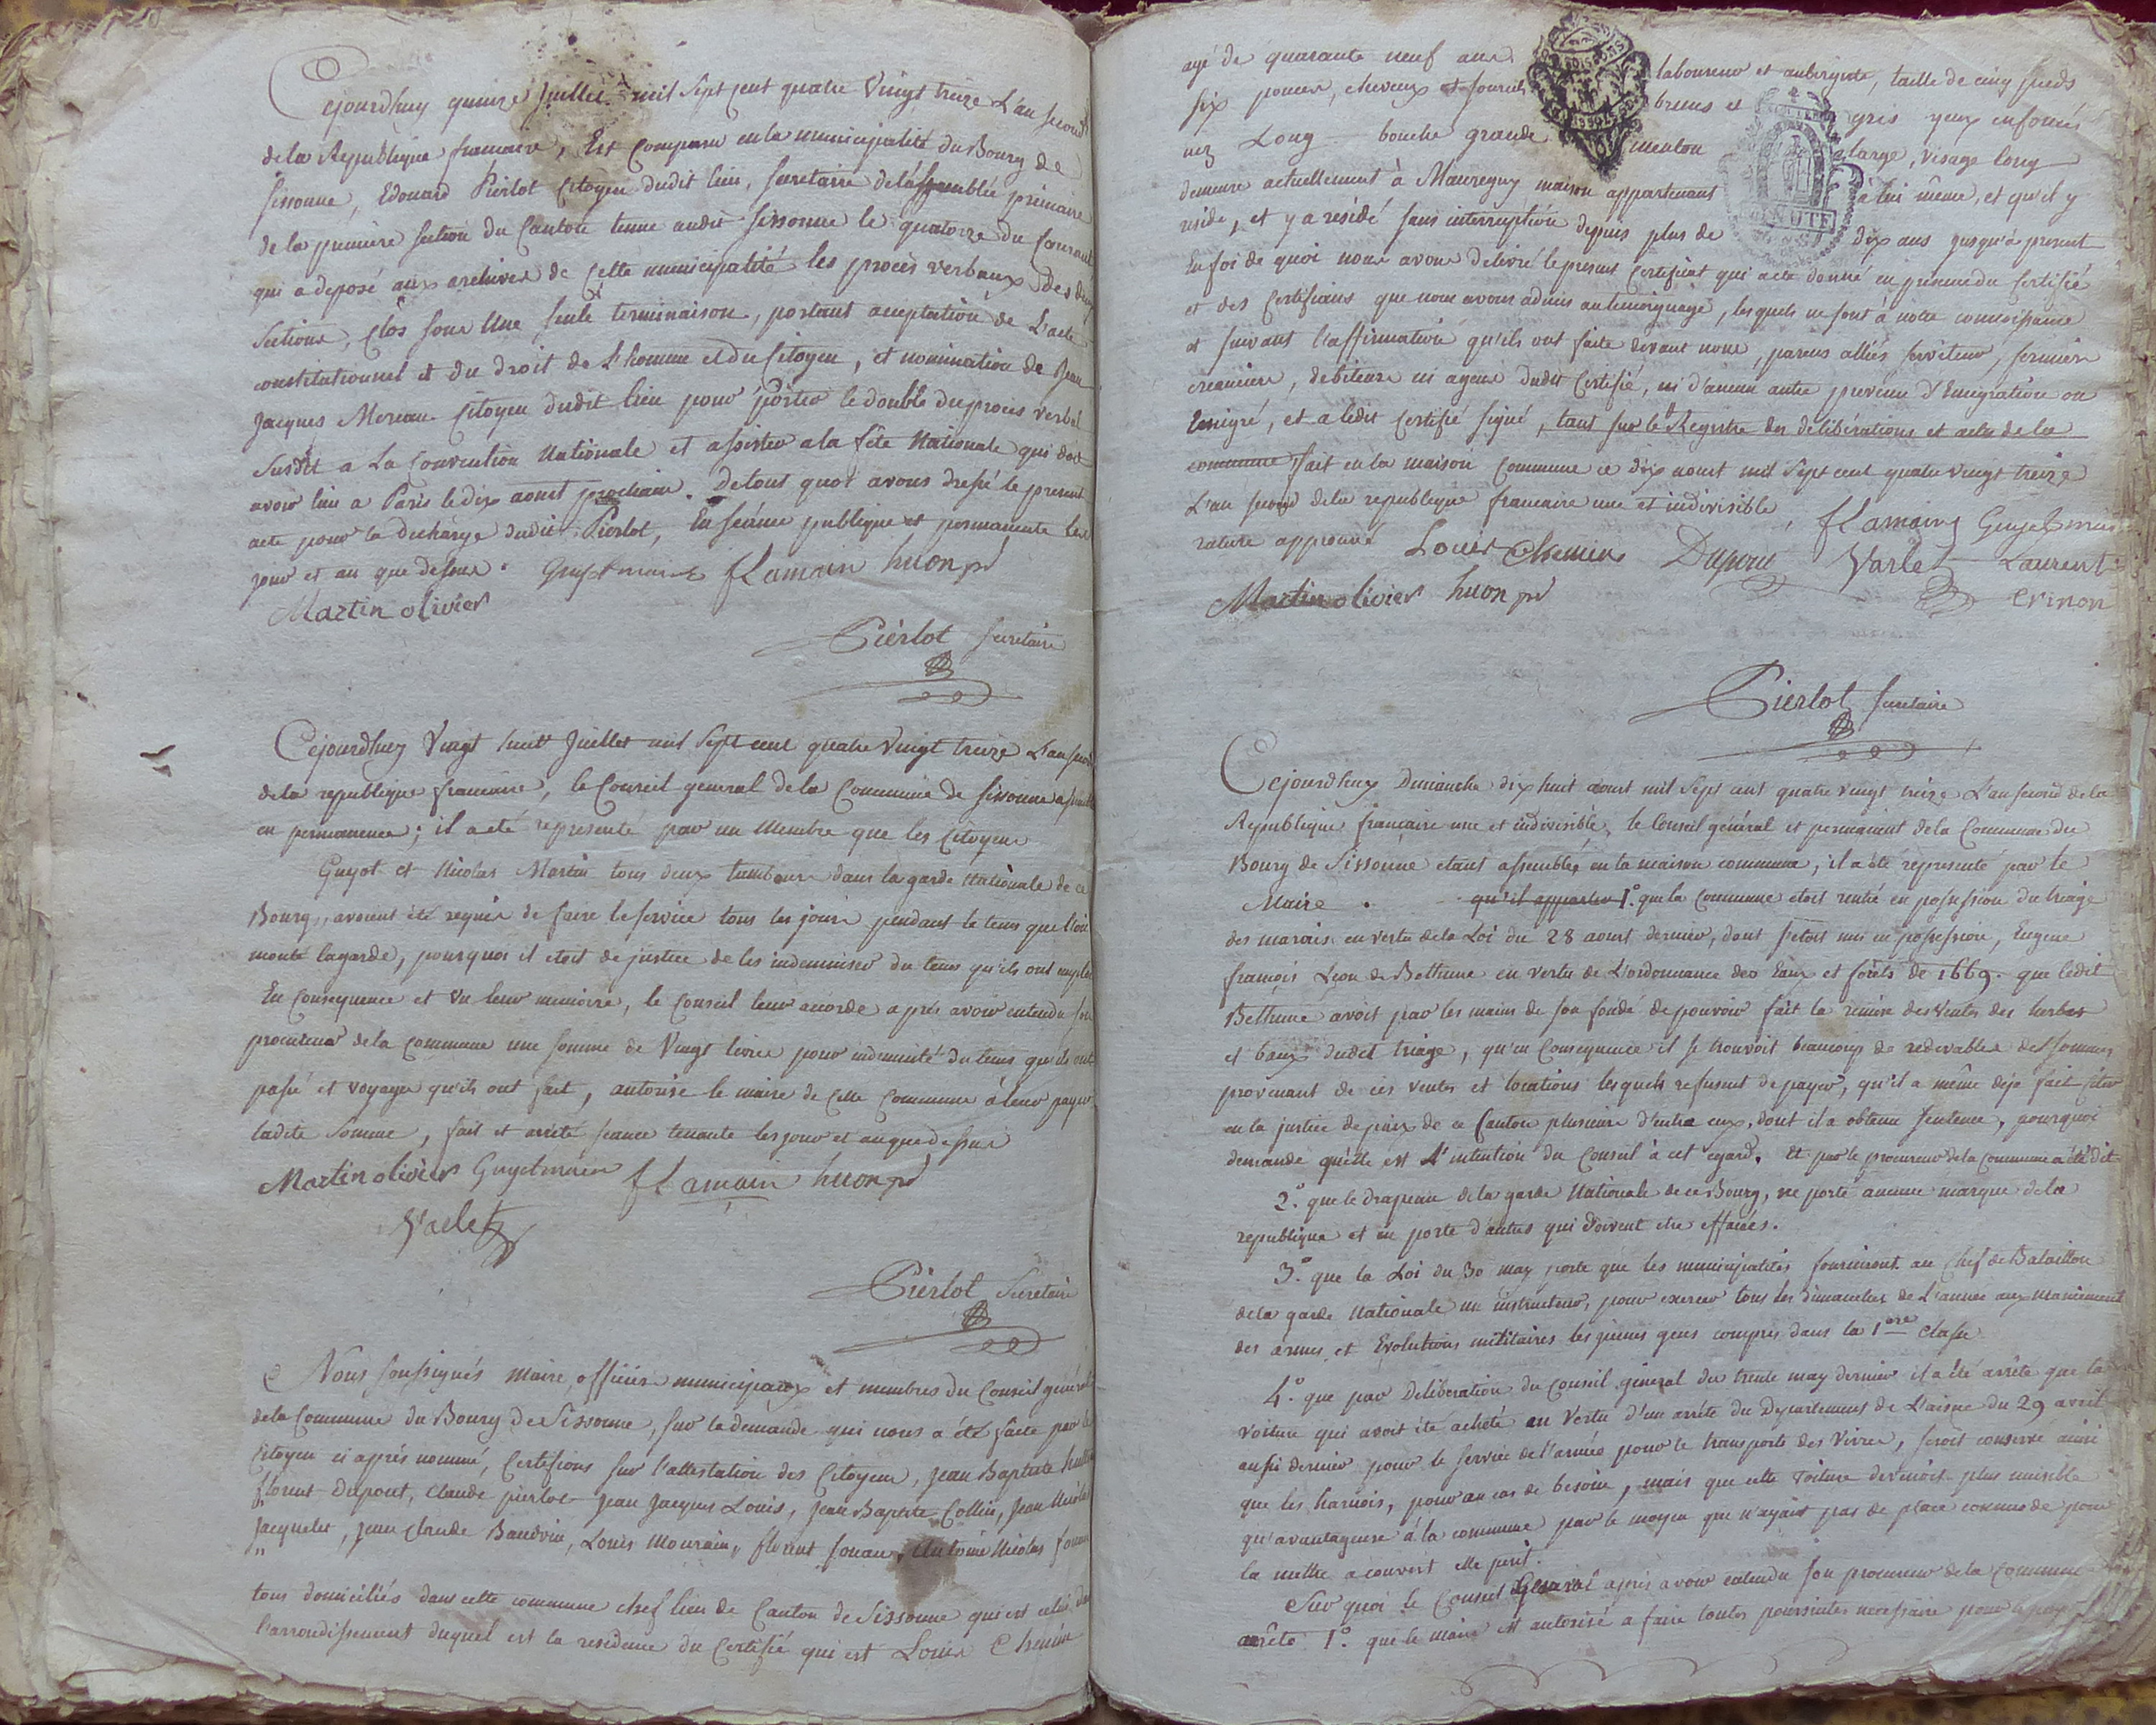 Cejourdhuy quinze Juillet mil Sept cent quatre Vingt treize L'an second
de la Republique francaise, Est Comparu en la municipalité du Bourg de
Sissonne, Edouard Pierlot Citoyen dudit lieu, secretaire de l'assemblée primaire
de la premiere section du Canton tenue audit Sissonne le quatorze du Courant
qui a deposé aux archives de Cette municipalité les proces verbaux des deux
Sections, Clos sous Une seule terminaison, portant acceptation de L'acte
constitutionnel et du droit de L'homme et du Citoyen, et nomination de Jean
Jacques Moreau Citoyen dudit lieu pour porter le double du proces verbal
Susdit a La Convention Nationale et assister a la fête Nationale qui doit
avoir lieu a Paris le dix aoust prochain. De tout quoi avons dressé le present
acte pour la decharge dudit Pierlot, En séance publique et permanente les
jour et an que dessus. Guyot maire flamain huon pr
Martin olivier
Pierlot secretaire
Cejourdhuy Vingt huit Juillet mil Sept cent quatre Vingt treize L'an second
de la republique francaise, le Conseil general de la Commune de Sissonne assemblé
en permanence; il a eté representé par un Membre que les Citoyens
Guyot et Nicolas Martin tous deux tambours dans la garde Nationale de ce
Bourg, avoient été requis de faire le service tous les jours pendant le tems que l'on
monté la garde, pourquoi il etoit de justice de les indemniser du tems qu'ils ont employé
En Consequence et vu leur memoire, le Conseil leur accorde après avoir entendu son
procureur de la Commune une somme de Vingt livres pour indemnité du tems qu'ils ont
passé et voyages qu'ils ont fait, autorise le maire de Cette Commune à leur payer
ladite Somme, fait et arrêté seance tenante les jour et an que dessus
Martin olivier Guyot maire flamain huon pr
Varlet
Pierlot Secretaire
Nous soussignés Maire, officiers municipaux et membres du Conseil général
de la Commune du Bourg de Sissonne, sur la demande qui nous a été faite par le
Citoyen ci après nommé, Certifions sur l'attestation des Citoyens, Jean Baptiste
florent Dupont, Claude pierlot Jean Jacques Louis, Jean Baptiste Collin, Jean Nicolas
Jacquelet, Jean Claude Baudoin, Louis Mourain, florent fouan, Antoine Nicolas
tous domiciliés dans cette commune chef lieu de Canton de Sissonne qui est celui dans
l'arrondissement duquel est la residence du Certifié qui est Louis Chemin
agé de quarante neuf ans laboureur et aubergiste, taille de cinq pieds
six pouces, cheveux et sourcils bruns et gris yeux enfoncés
nez Long bouche grande menton large, visage long
demeure actuellement à Mauregny maison appartenant à lui même, et qu'il y
reside, et y a residé sans interruption depuis plus de dix ans jusqu'a present
En foi de quoi nous avons delivré le present Certificat qui a eté donné en presence du Certifié
et des Certifians que nous avons admis en temoignage, lesquels ne sont à notre connoissance
et suivant l'affirmation qu'ils ont faite devant nous, parens alliés serviteurs, fermiers
creanciers, debiteurs ni agens dudit Certifié, ni d'aucun autre prevenu d'Emigration ou
Emigré, et a ledit Certifié signé, tant sur le Registre des deliberations et actes de la
commune, fait en la maison Commune ce dix aoust mil Sept cent quatre vingt treize
L'an second de la republique francaise une et indivisible, flamain Guyot maire
rature approuvé Louis Chemin Dupont Varlet Laurent
Martin olivier huon pr Crinon
Pierlot secretaire
Cejourdhuy Dimanche dix huit aoust mil Sept cent quatre vingt treize L'an second de la
Republique française une et indivisible, le Conseil général et permanent de la Commune du
Bourg de Sissonne etant assemblés en la maison commune, il a été representé par le
Maire . qu'il appartur 1.° que la Commune etoit rentré en possession du triage
des marais en vertu de la Loi du 28 aoust dernier, dont s'etoit mis en possession, Eugene
françois Leon de Bethune en vertu de L'ordonnance des Eaux et forêts de 1669. que ledit
Bethune avoit par les mains de son fondé de pouvoir fait la remise des Ventes des herbes
et baux dudit triage, qu'en Consequence il se trouvoit beaucoup de redevables des sommes
provenant de ces ventes et locations lesquels refusent de payer, qu'il a même déja fait citer
en la justice de paix de ce Canton plusieurs d'entre eux, dont il a obtenu sentence, pourquoi
demande quelle est L'intention du Conseil à cet egard. Et par le procureur de la Commune a été dit
2.° que le drapeau de la garde Nationale de ce Bourg, ne porte aucune marque de la
republique et en porte d'autres qui doivent etre effacées.
3.° que la Loi du 30 may porte que les municipalités fourniront au Chef de Bataillon
de la garde Nationale un instructeur, pour exercer tous les dimanches de L'année aux maniement
des armes et Evolutions militaires les jeunes gens compris dans la 1ere classe
4.° que par Deliberation du Conseil général du trente may dernier il a été arrêté que la
Voiture qui avoit été acheté en vertu d'un arrêté du Departement de L'aisne du 29 avril
aussi dernier pour le service de l'armée pour le transporte des vivres, seroit conservé ainsi
que les harnois, pour au cas de besoin, mais que cette voiture devenoit plus nuisible
qu'avantageuse à la commune par le moyen que n'ayant pas de place commode pour
la mettre a couvert elle perit.
Sur quoi le Conseil General après avoir entendu son procureur de la Commune
arrête 1.° que le maire est autorisé a faire toutes poursuites necessaire pour le